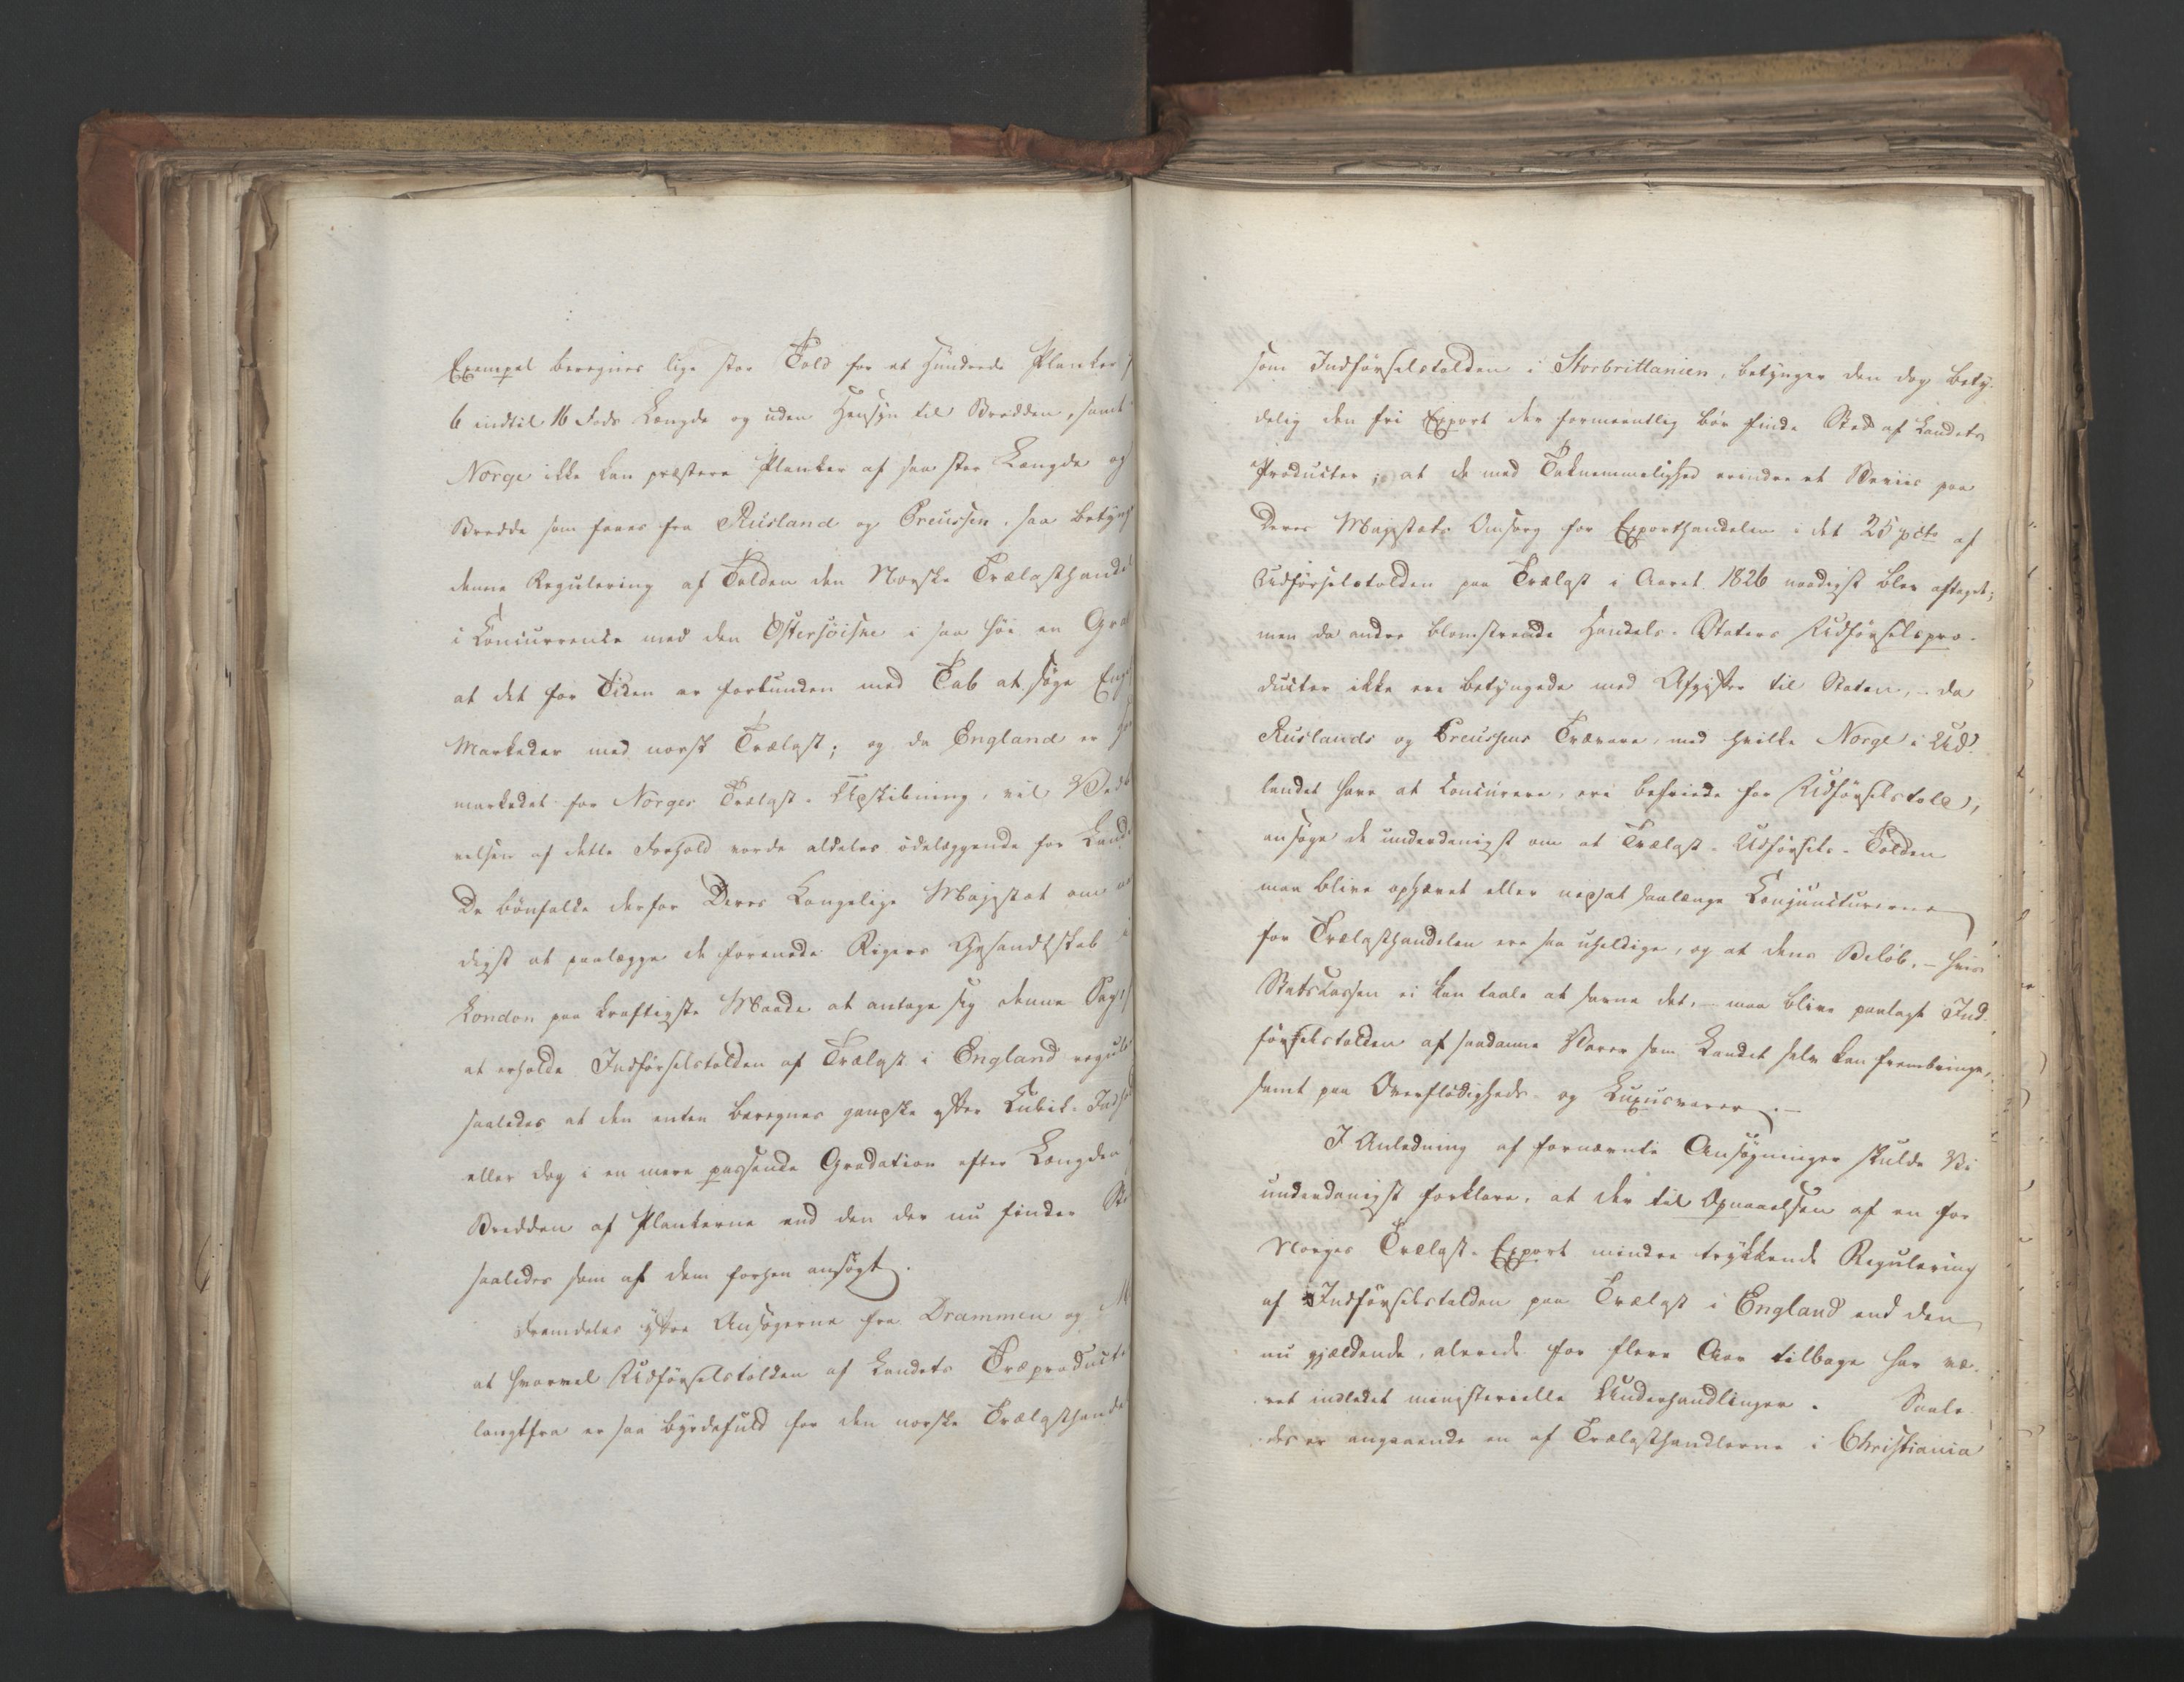 Exempel beregnes lige stor Told for et Hundrede Planker
6 indtil 16 Fods Længde og uden Hensyn til Bredden, samt
Norge ikke kan præstere Planker af saa stor Længde og
Bredde som faaes fra Rusland og Preussen, saa betyng
denne Regulering af Tolden den Norske Trælasthandel
i Concurrence med den Østersøiske i saa høi en Gra
at det for Tiden er forbunden med Tab at søge Eng
Markeder med norsk Trælast; og da England er
markedet for Norges Trælast-Udskibning, vil Vedb
velsen af dette Forhold vorde aldeles ødelæggende for Land
De bønfalde derfor Deres Kongelige Majestæt om
digst at paalægge de forenede Rigers Gesandtskab i
London paa kraftigste Maade at antage sig denne Sag,
at erholde Indførselstolden af Trælast i England regule
saaledes at den enten beregnes ganske efter Kubik-Indh
eller dog i en mere passende Gradation efter Længden
Bredden af Plankerne end den der nu finder St
saaledes som af dem forhen ansøgt.
Fremdeles yttre Ansøgerne fra Drammen og M
at hvorvel Udførselstolden af Landets Træproducte
langtfra er saa byrdefuld for den norske Trælasthande
som Indførselstolden i Storbrittanien, betynger den dog bety-
delig den fri Export der formeentlig bør finde Sted af Landets
Producter; at de med Taknemmelighed erindre et Beviis paa
Deres Majestæts Omsorg for Exporthandelen i det 25 pCto af
Udførselstolden paa Trælast i Aaret 1826 naadigst blev aftaget;
men da andre blomstrende Handels-Staters Udførselspro-
ducter ikke ere betyngede med Afgifter til Staten, - da
Ruslands og Preussens Trævare, med hvilke Norge i Ud-
landet have at concurrere, ere befriede for Udførselstold,
ansøge de underdanigst om at Trælast-Udførsels-Tolden
maa blive ophævet eller nedsat saalænge Conjuncturerne
for Trælasthandelen ere saa uheldige, og at dens Beløb, - hvis
Statskassen ei kan taale at savne det, - maa blive paalagt Ind-
førselstolden af saadanne Varer som Landet selv kan frembringe,
samt paa Overflødigheds- og Luxusvarer. -
I Anledning af fornævnte Ansøgninger skulde Vi
underdanigst forklare, at der til Opnaaelsen af en for
Norges Trælast-Export mindre trykkende Regulering
af Indførselstolden paa Trælast i England end den
nu gjældende, allerede for flere Aar tilbage har væ-
ret indledet ministerielle Underhandlinger. Saale-
des er angaaende en af Trælasthandlerne i Christiania